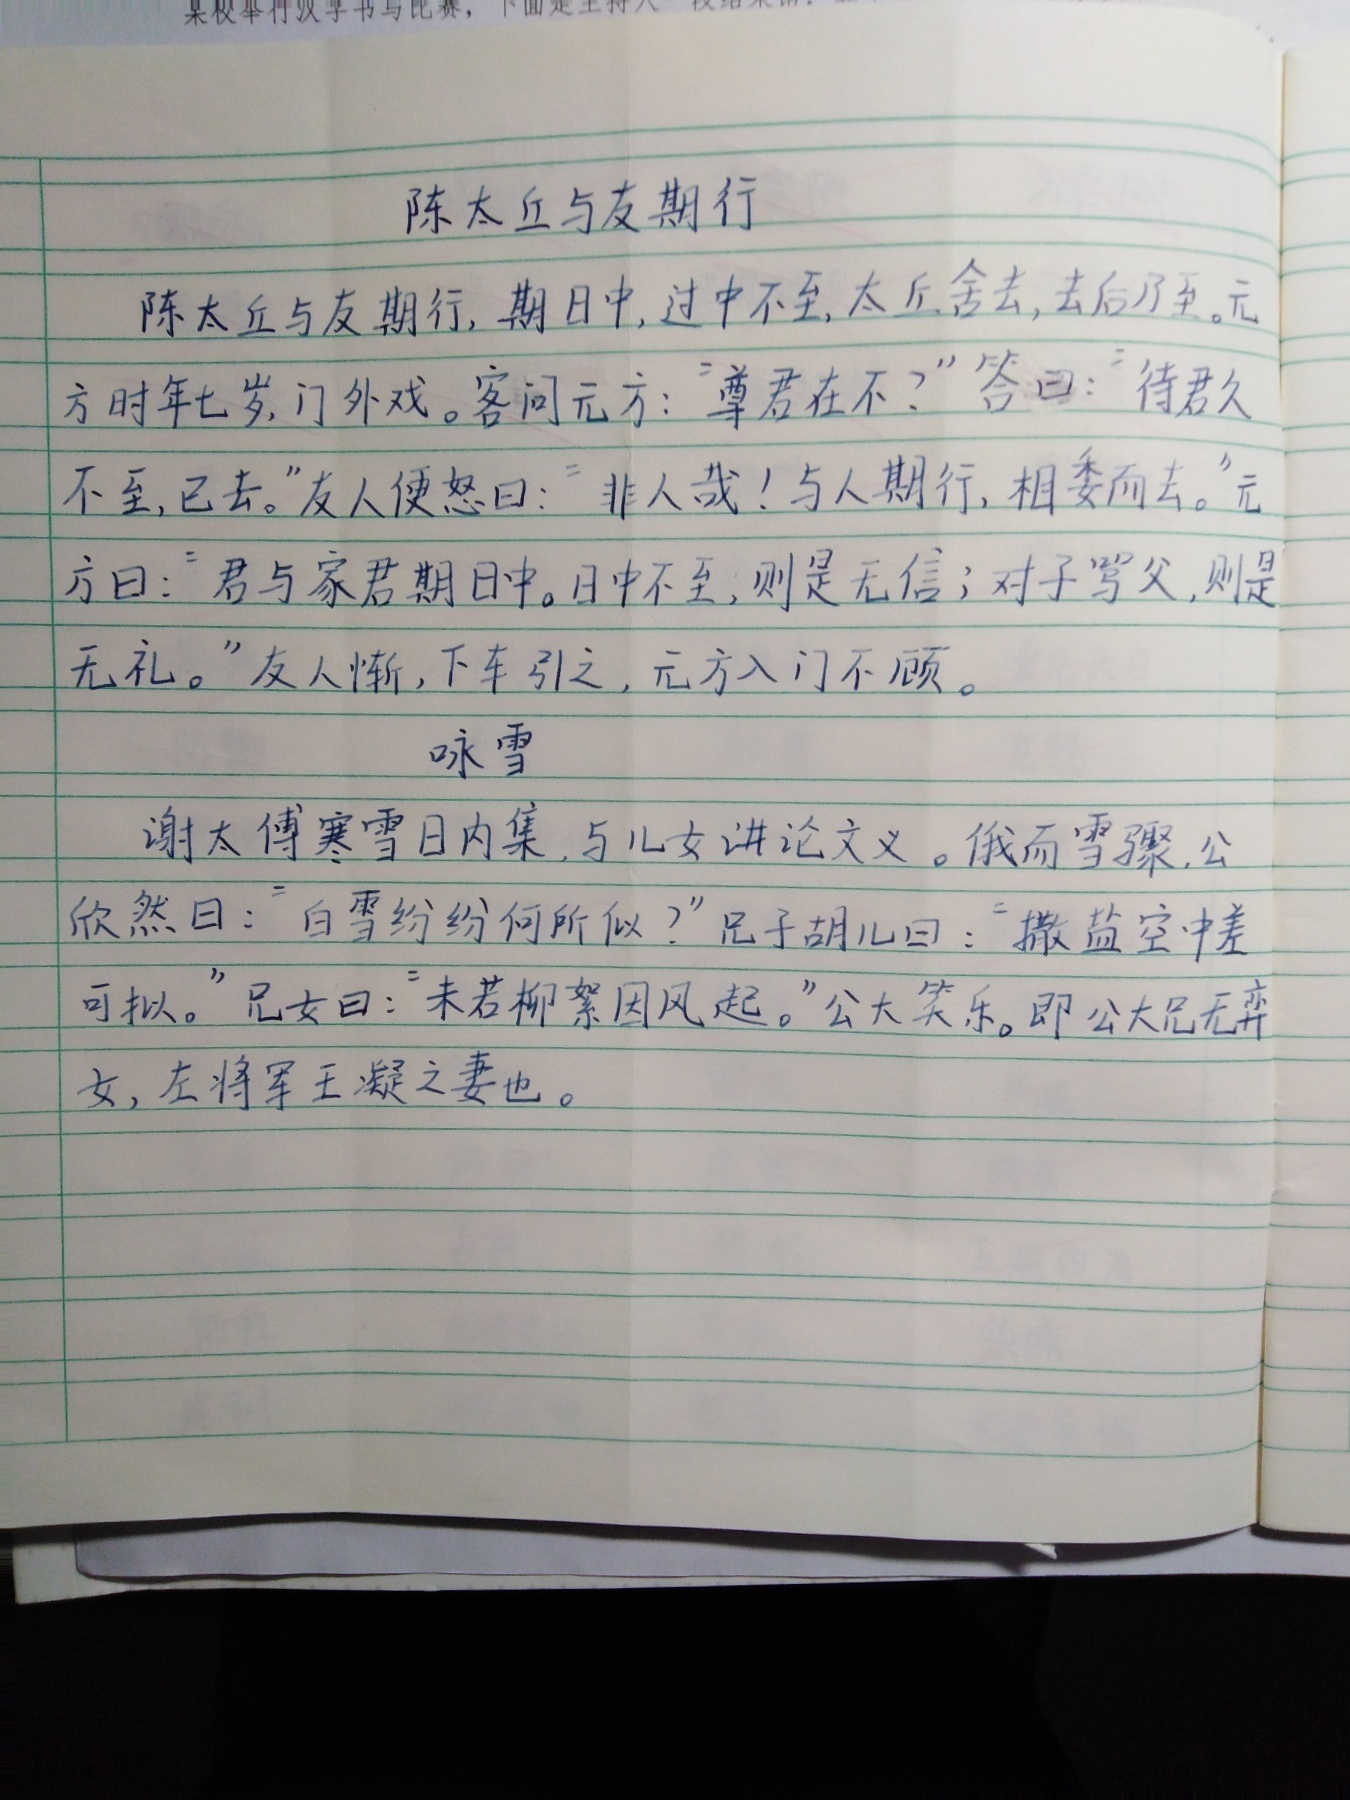 某校举行汉字书写比赛，下面是主持人一段结束语，
陈太丘与友期行
陈太丘与友期行，期日中，过中不至，太丘舍去，去后乃至。元
方时年七岁，门外戏。客问元方：“尊君在不？”答曰：“待君久
不至，已去。”友人便怒曰：“非人哉！与人期行，相委而去。”元
方曰：“君与家君期日中。日中不至，则是无信；对子骂父，则是
无礼。”友人惭，下车引之，元方入门不顾。
咏雪
谢太傅寒雪日内集，与儿女讲论文义。俄而雪骤，公
欣然曰：“白雪纷纷何所似？”兄子胡儿曰：“撒盐空中差
可拟。”兄女曰：“未若柳絮因风起。”公大笑乐。即公大兄无弈
女，左将军王凝之妻也。